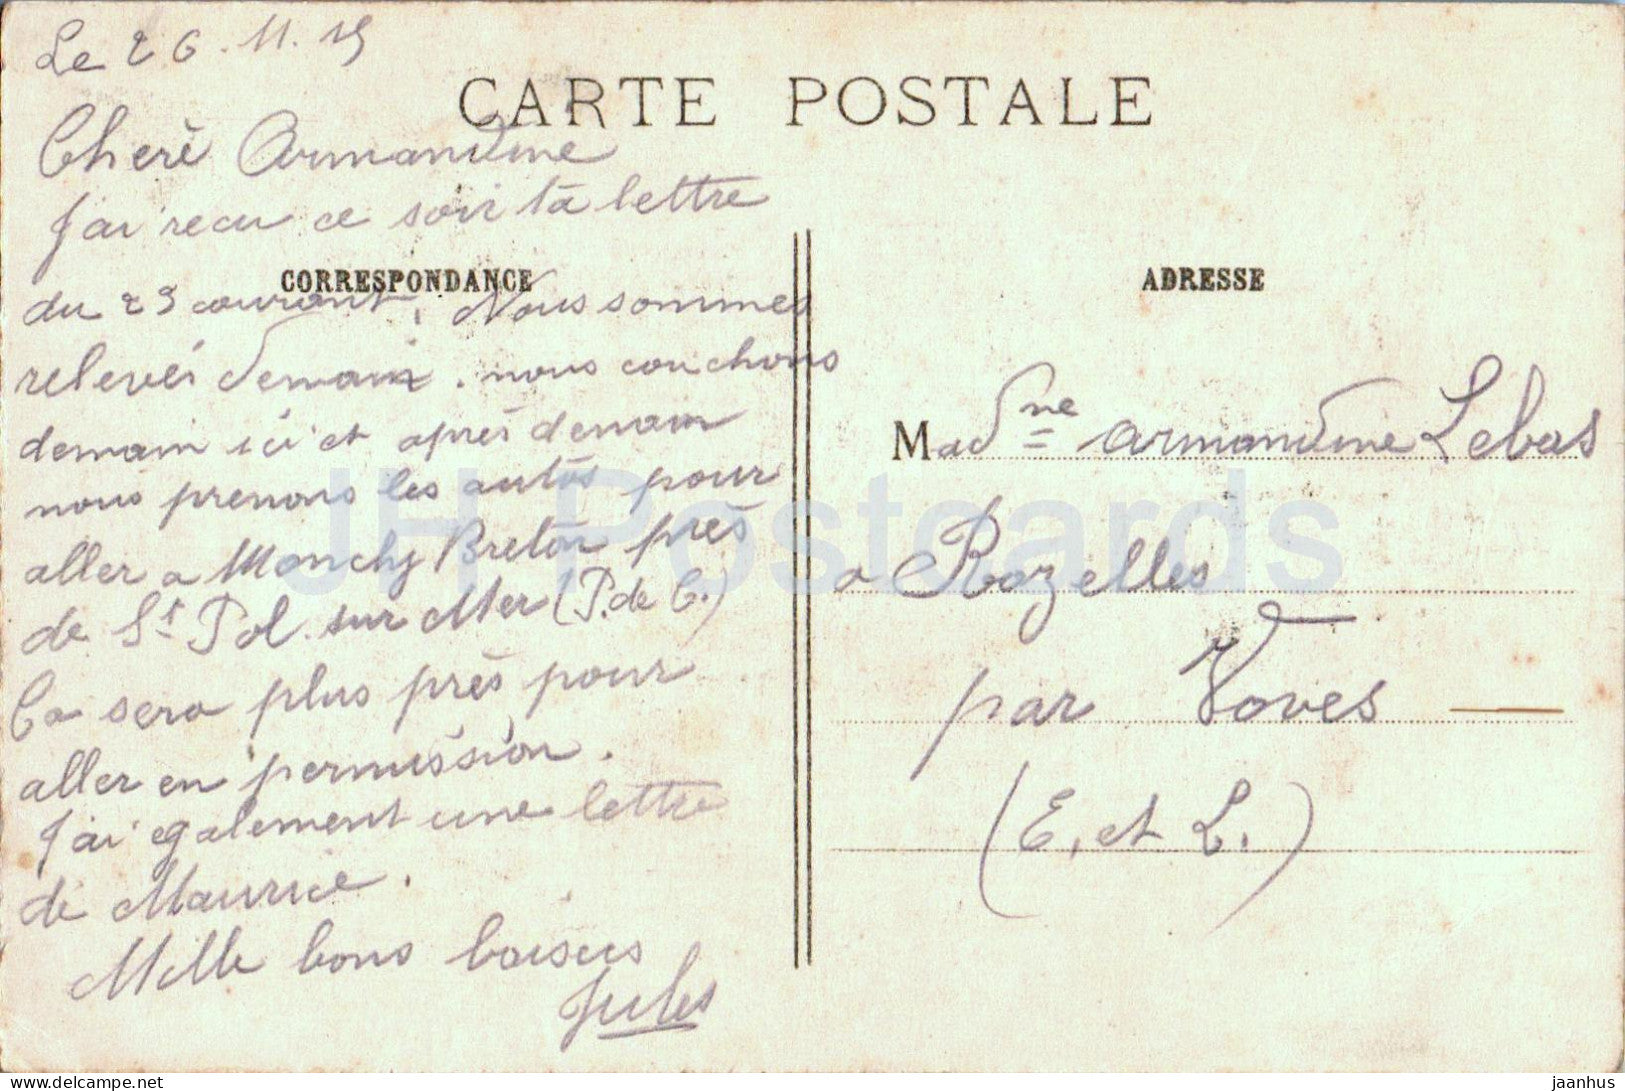 Le 26.11.15
CARTE POSTALE
Cheré Armandine
J'ai recu ce soir ta lettre
CORRESPONDANCE
du 23 courant. Nous sommes
relevés demain. nous couchons
demain ici et après demain
nous prenons les autos pour
aller a Monchy Breton près
de St Pol sur Mer (P. de C.)
Ca sera plus près pour
aller en permission.
J'ai également une lettre
de Maurice.
Mille bons baisers
Jules
ADRESSE
Madme Armandine Lebas
a Rozelles
par Voves
(E. et L.)
JH Postcards
delcampe.net
jaanhus